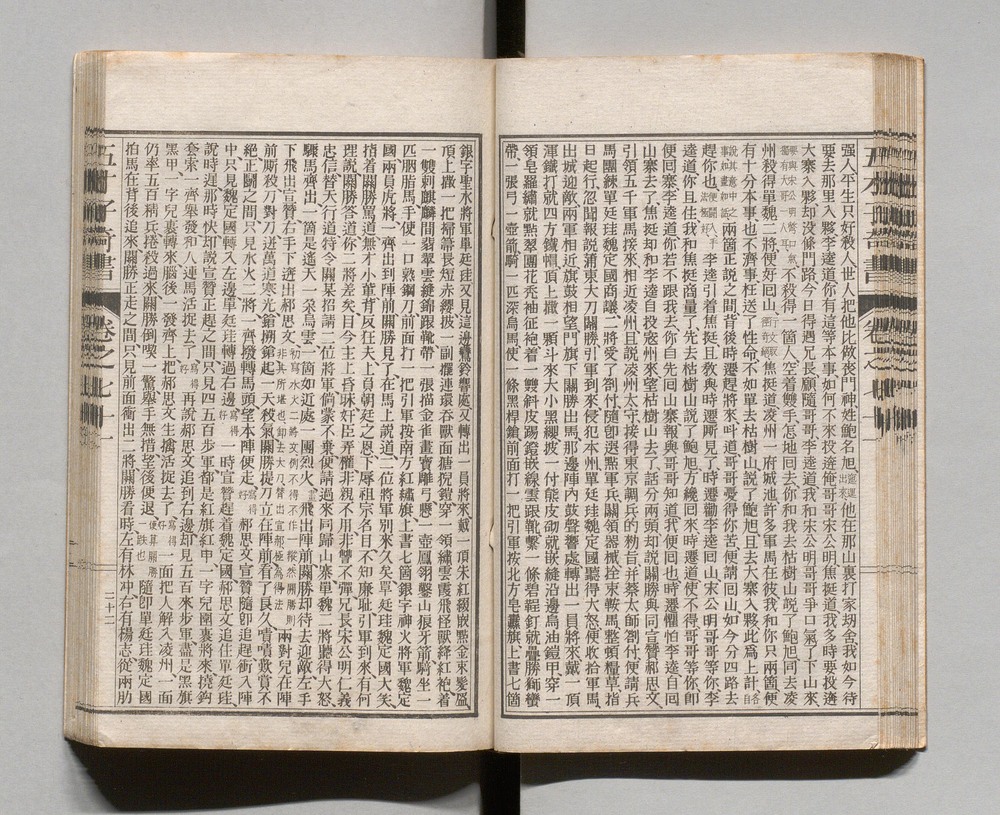 强人平生只好殺人世人把他比做喪門神姓鮑名旭他在那山裏打家刼舍我如今待
要去那里入夥李逵道你有這等本事如何不來投逩俺哥哥宋公明焦挺道我多時要投逩
大寨入夥却没條門路今日得遇兄長願隨哥哥李逵道我和宋公明哥哥爭口氣了下山來
不殺得一箇人空着雙手怎地囘去你和我去枯樹山説了鮑旭同去凌
州殺得單魏二將便好囘山焦挺道凌州一府城池許多軍馬在彼我和你只兩箇便
有十分本事也不濟事枉送了性命不如單去枯樹山説了鮑旭且去大寨入夥此爲上計
兩箇正説之間背後時遷趕將來叫道哥哥憂得你苦便請囘山如今分四路去
趕你也李逵引着焦挺且敎與時遷厮見了時遷勸李逵囘山宋公明哥哥等你李
逵道你且住我和焦挺商量了先去枯樹山説了鮑旭方纔囘來時遷道使不得哥哥等你即
便囘寨李逵道你若不跟我去你自先囘山寨報與哥哥知道我便囘也時遷懼怕李逵自囘
山寨去了焦挺却和李逵自投寇州來望枯樹山去了話分兩頭却説關勝與同宣贊郝思文
引領五千軍馬接來相近凌州且説凌州太守接得東京調兵的勑旨并蔡太師劄付便請兵
馬團練單廷珪魏定國商議二將受了劄付隨即選㸃軍兵關領軍器械拴束鞍馬整頓糧草指
日起行忽聞報説蒲東大刀關勝引軍到來侵犯本州單廷珪魏定國聽得大怒便收拾軍馬
出城迎敵兩軍相近旗鼓相望門旗下關勝出馬那邊陣内鼓聲響處轉出一員將來戴一頂
渾鐵打就四方鐵帽頂上撒一顆斗來大小黑纓披一付熊皮砌就嵌縫沿邊烏油鎧甲穿一
領皂羅繡就㸃翠團花禿袖征袍着一雙斜皮踢鐙嵌線雲跟靴繫一條碧鞓釘就疊勝獅蠻
帶一張弓一壺箭騎一匹深烏馬使一條黑桿鎗前面打一把引軍按北方皂纛旗上書七箇
銀字聖水將軍單廷珪又見這邊鸞鈴響處又轉出一員將來戴一頂朱紅綴嵌㸃金束髮盔
頂上撒一把掃箒長短赤纓披一副擺連環吞獸面猊鎧穿一領繡雲霞飛怪獸絳紅袍着
一雙刺麒麟間翡翠雲縫錦跟靴帶一張描金雀畫寶雕弓懸一壺鳳翎鑿山狼牙箭騎坐一
匹胭脂馬手使一口熟鋼刀前面打一把引軍按南方紅繡旗上書七箇銀字神火將軍魏定
國兩員虎將一齊出到陣前關勝見了在馬上説道二位將軍別來久矣單廷珪魏定國大笑
指着關勝罵道無才小輩背反狂夫上負朝廷之恩下辱祖宗名目不知廉耻引軍到來有何
理説關勝答道你二將差矣目今主上昏昧奸臣弄權非親不用非讐不彈兄長宋公明仁義
忠信替天行道特令關某招請二位將軍倘蒙不棄便請過來同歸山寨單魏二將聽得大怒
驟馬齊出一箇是遥天一朶烏雲一箇如近處一團烈火飛出陣前關勝却待去迎敵左手
下飛出宣贊右手下逩出郝思文兩對兒在陣
前厮殺刀對刀迸萬道寒光鎗搠鎗起一天殺氣關勝提刀立在陣前看了良久嘖嘖歎賞不
絕正鬬之間只見水火二將一齊撥轉馬頭望本陣便走郝思文宣贊隨即追趕衝入陣
中只見魏定國轉入左邊單廷珪轉過右邊一時宣贊趕着魏定國郝思文追住單廷珪
説時遲那時快却説宣贊正趕之間只見四五百步軍都是紅旗紅甲一字兒圍裹將來撓鈎
套索一齊舉發和人連馬活捉去了再説郝思文追到右邊却見五百來步軍盡是黑旗
黑甲一字兒裹轉來腦後一發齊上把郝思文生擒活捉去了一面把人解入凌州一面
仍率五百精兵捲殺過來關勝倒喫一驚舉手無措望後便退隨即單廷珪魏定國
拍馬在背後追來關勝正走之間只見前面衝出二將關勝看時左有林冲右有楊志從兩肋
五才子奇書
卷之七十一
三十二